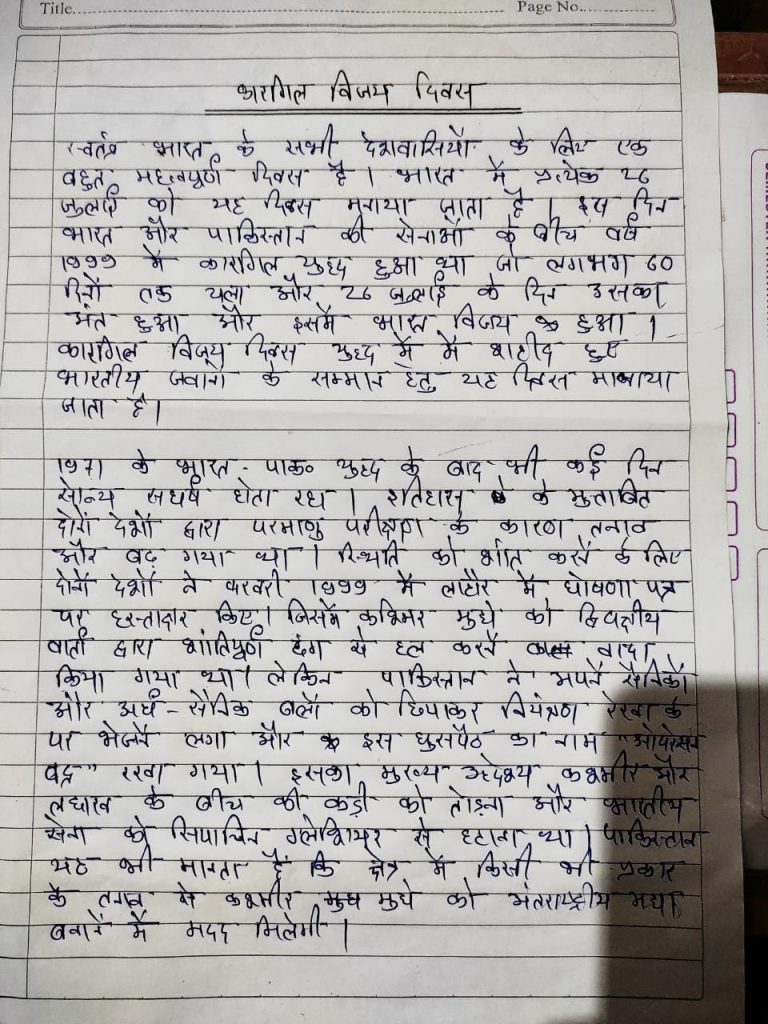 Title
Page No.
कारगिल विजय दिवस
स्वतंत्र भारत के सभी देशवासियों के लिए एक
बहुत महत्वपूर्ण दिवस है। भारत में प्रत्येक 26
जुलाई को यह दिवस मनाया जाता है। इस दिन
भारत और पाकिस्तान की सेनाओं के बीच वर्ष
1999 में कारगिल युद्ध हुआ था जो लगभग 60
दिनों तक चला और 26 जुलाई के दिन उसका
अंत हुआ और इसमें भारत विजय हुआ।
कारगिल विजय दिवस युद्ध में में शहीद हुए
भारतीय जवानों के सम्मान हेतु यह दिवस मानाया
जाता है।
1971 के भारत - पाक० युद्ध के बाद भी कई दिन
सैन्य संघर्ष होता रहा। इतिहास के मुताबित
दोनों देशों द्वारा परमाणु परीक्षण के कारण तनाव
और बढ़ गया था। स्थिति को शांत करने के लिए
दोनों देशों ने फरवरी 1999 में लाहौर में घोषणा पत्र
पर हस्ताक्षर किए। जिसमें कश्मिर मुद्दे को द्विपक्षीय
वार्ता द्वारा शांतिपूर्ण ढंग से हल करने वादा
किया गया था। लेकिन पाकिस्तान ने अपने सैनिकों
और अर्ध - सैनिक बलों को छिपाकर नियंत्रण रेखा के
पर भेजने लगा और इस घुसपैठ का नाम "ओपरेसन
बद्र" रखा गया। इसका मुख्य उद्देश्य कश्मीर और
लद्दाख के बीच की कड़ी को तोड़ना और भारतीय
सेना को सियाचिन ग्लेशियर से हटाना था। पाकिस्तान
यह भी मानता है कि क्षेत्र में किसी भी प्रकार
के तनाव से कश्मीर मुद्दे को अंतराष्ट्रीय मुद्दा
बनाने में मदद मिलेगी।